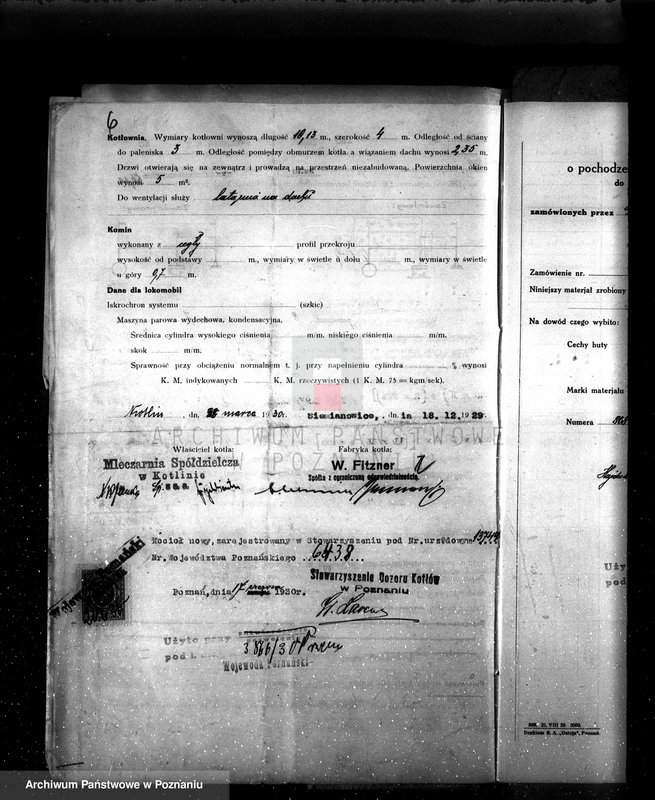 6
Kotłownia. Wymiary kotłowni wynoszą długość 10,13 m., szerokość 4 m. Odległość od ściany
do paleniska 3 m. Odległość pomiędzy obmurzem kotła a wiązaniem dachu wynosi 2,35 m.
Drzwi otwierają się na zewnątrz i prowadzą na przestrzeń niezabudowaną. Powierzchnia okien
wynosi 5 m².
Do wentylacji służy latarnia na dachu
Komin
wykonany z cegły profil przekroju
wysokość od podstawy m., wymiary w świetle u dołu m., wymiary w świetle
u góry 0,7 m.
Dane dla lokomobil
Iskrochron systemu (szkic)
Maszyna parowa wydechowa, kondensacyjna.
Średnica cylindra wysokiego ciśnienia m/m. niskiego ciśnienia m/m.
skok m/m.
Sprawność przy obciążeniu normalnem t. j. przy napełnieniu cylindra % wynosi
K. M. indykowanych K. M. rzeczywistych (1 K. M. 75 = kgm/sek).
Kotlin, dn. marca 1930. Siemianowice, dnia 18.12.1929.
ARCHIWUM PAŃSTWOWE
W POZNANIU
Właściciel kotła: Fabryka kotła:
Mleczarnia Spółdzielcza W. Fitzner
w Kotlinie Spółka z ograniczoną odpowiedzialnością.
Sp. z o. o.
Kocioł nowy, zarejestrowany w Stowarzyszeniu pod Nr. urzędowym
Nr. Województwa Poznańskiego 6438
Stowarzyszenie Dozoru Kotłów
w Poznaniu
Poznań, dnia 17 czerwca 1930r.
Użyto przy
pod l.
Wojewoda Poznański
o pochodze
do
zamówionych przez
Zamówienie nr.
Niniejszy materjał zrobiony
Na dowód czego wybito:
Cechy huty
Marki materjału
Numera
Użyto
pod
349. 21. VIII 29 5000.
Drukiem S. A. „Ostoja", Poznań.
Archiwum Państwowe w Poznaniu